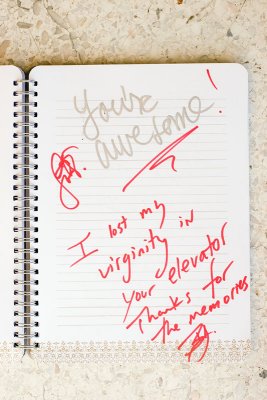 You're
awesome
!
I lost my
virginity in
your elevator
Thanks for
the memories